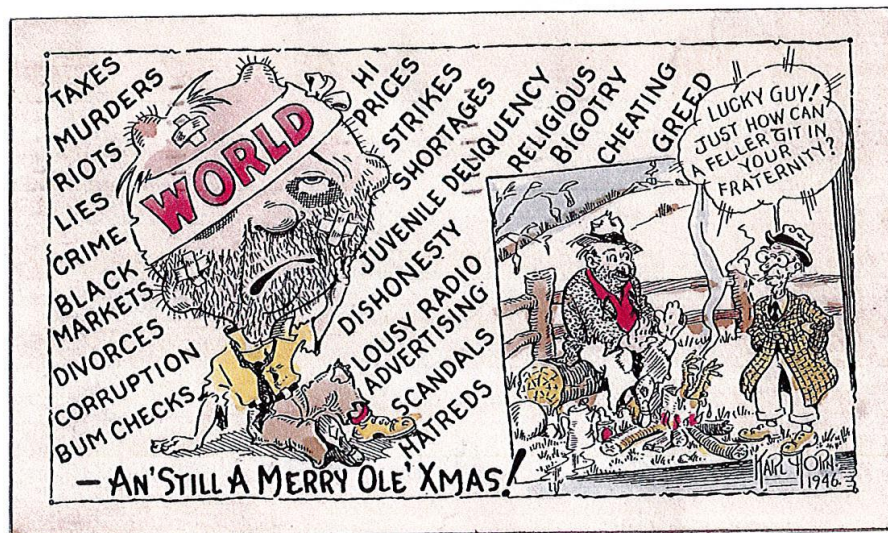 TAXES
MURDERS
RIOTS
LIES
CRIME
BLACK
MARKETS
DIVORCES
CORRUPTION
BUM CHECKS
WORLD
HI
PRICES
STRIKES
SHORTAGES
JUVENILE DELIQUENCY
DISHONESTY
LOUSY RADIO
ADVERTISING
SCANDALS
HATREDS
RELIGIOUS
BIGOTRY
CHEATING
GREED
LUCKY GUY!
JUST HOW CAN
A FELLER GIT IN
YOUR
FRATERNITY?
1946.
— AN' STILL A MERRY OLE' XMAS!